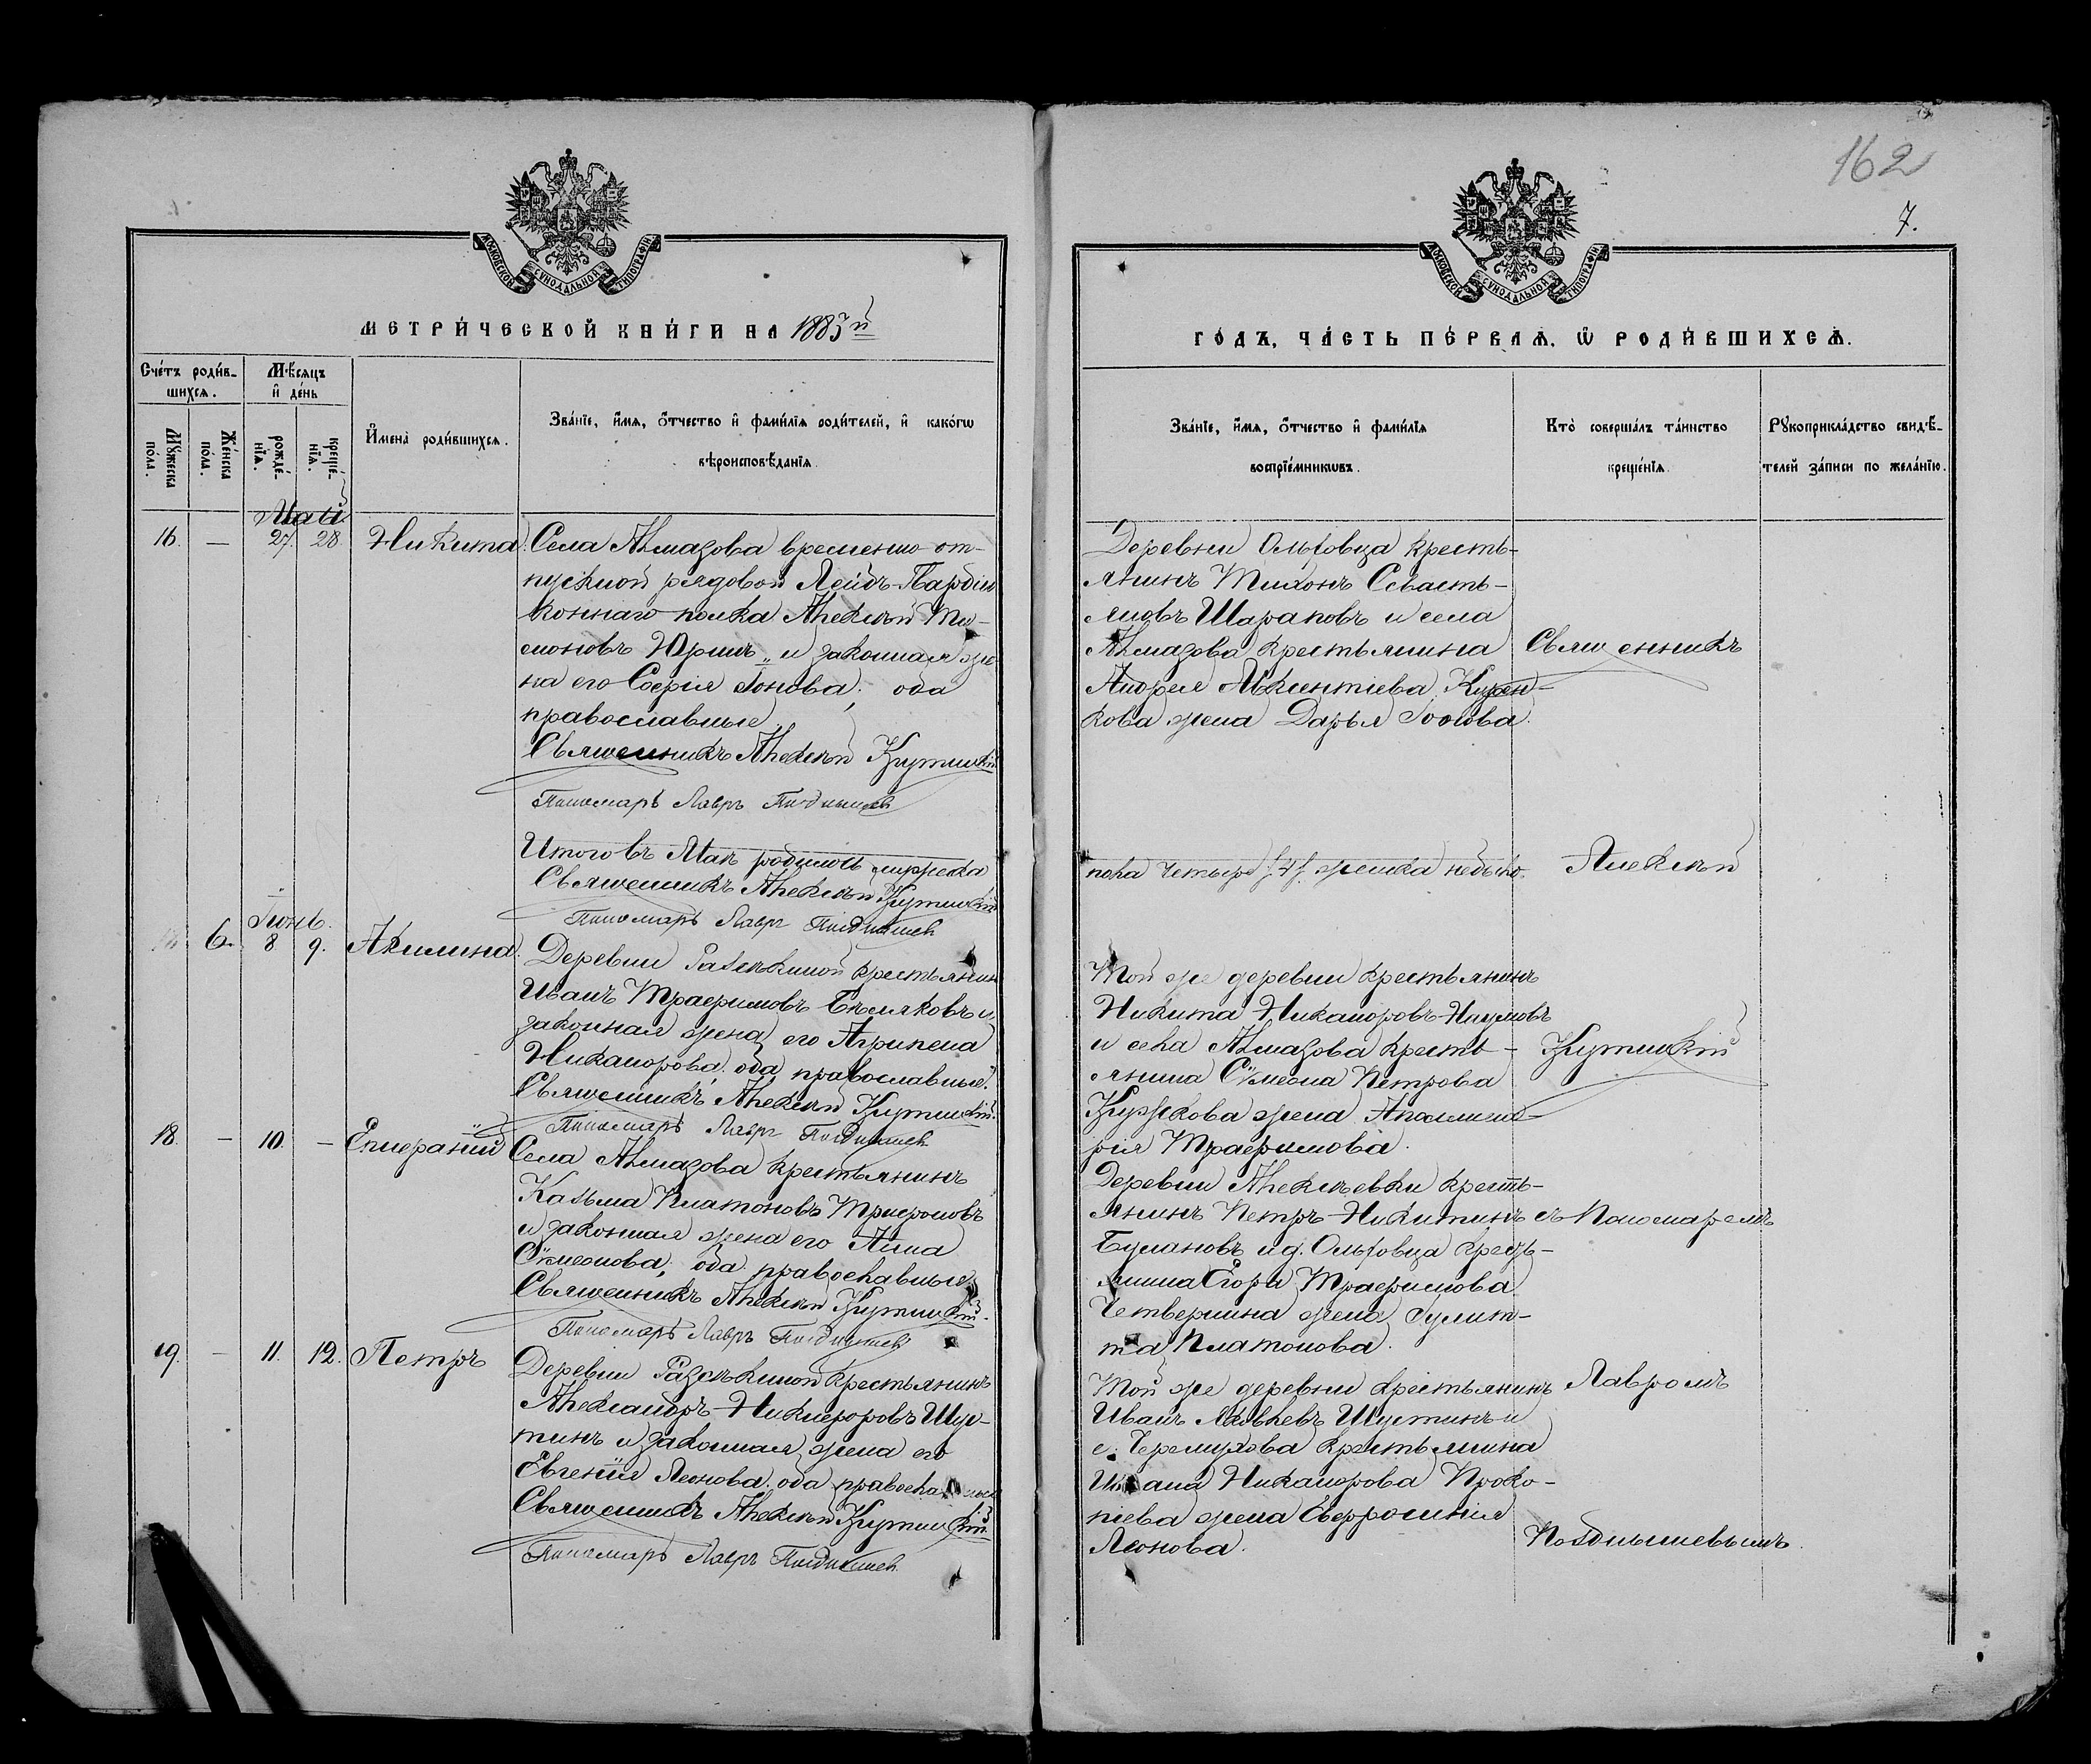 162
7.
МОСКОВСКОЙ СѴНОДАЛЬНОЙ ТИПОГРАФІИ
МОСКОВСКОЙ СѴНОДАЛЬНОЙ ТИПОГРАФІИ
МЕТРИ́ЧЕСКОЙ КНИ́ГИ НА 1883й
ГО́ДЪ, ЧА́СТЬ ПЕ́РВАѦ, Ѡ РОДИ́ВШИХСѦ.
Сче́тъ роди́в-
шихсѧ.
Мѣ́сѧцъ
и҆ де́нь
Мꙋ́жеска по́ла.
Же́нска по́ла.
рожде́-нїѧ.
креще́-нїѧ.
И҆мена̀ роди́вшихсѧ.
Зва́нїе, и҆́мѧ, ѻ҆́тчество и҆ фами́лїѧ роди́телей, и҆ како́гѡ
вѣроисповѣ́данїѧ.
Зва́нїе, и҆́мѧ, ѻ҆́тчество и҆ фами́лїѧ
воспрїе́мникѡвъ.
Кто̀ соверша́лъ та́инство
креще́нїѧ.
Рꙋкоприкла́дство свидѣ́-
телей за́писи по жела́нїю.
Май
16. — 27. 28. Никита.
Села Алмазова временно от-
пускной рядовой Лейбъ-Гвардіи
Коннаго полка Алексѣй Ти-
моновъ Юринъ и законная же-
на его Софія Іонова; оба
православные.
Священникъ Алексѣй Крутицкій
Пономарь Лавръ Позднышев
Деревни Ольховца кресть-
янинъ Тихонъ Севасть-
яновъ Шараповъ и села
Алмазова крестьянина
Андрея Авксентіева
кова жена Дарья Іонова.
Священникъ
Итого въ Маѣ родилось мужеска
пола четыре /4/ женска небыло.
Священникъ Алексѣй Крутицкій
Пономарь Лавръ Позднышев
Алексѣй
Іюнь.
6. 8 9. Акилина.
Деревни Разсѣкиной крестьянинъ
Иванъ Трафимовъ Бѣляковъ и
законная жена его Агрипена
Никанорова; оба православные.
Священникъ Алексѣй Крутицкій.
Пономарь Лавръ Позднышев
Той же деревни крестьянинъ
Никита Никаноровъ Наумовъ
и села Алмазова кресть-
янина Сѵмеона Петрова
жена
рія Трафимова.
Крутицкій
18. — 10. — Епиераній
Села Алмазова крестьянинъ
Казьма Платоновъ Трифоновъ
и законная жена его Анна
Сѵмеонова; оба православные.
Священникъ Алексѣй Крутицкій.
Пономарь Лавръ Позднышев
Деревни Алексѣевки кресть-
янинъ Петръ Никитинъ
Булановъ и д. Ольховца кресть-
янина Егора Трафимова
Четверткина жена Іулит-
та Платонова.
съ Пономаремъ
19. — 11. 12. Петръ
Деревни Разсѣкиной крестьянинъ
Александръ Никифоровъ Шус-
тинъ и законная жена его
Евгенія Леонова; оба православные
Священникъ Алексѣй Крутицкій
Пономарь Лавръ Позднышев.
Той же деревни крестьянинъ
Иванъ Яковлевъ Шустинъ и
с. Черемухова крестьянина
Ивана Никанорова Проко-
піева жена Евфросинія
Леонова.
Лавромъ
Позднышевымъ.